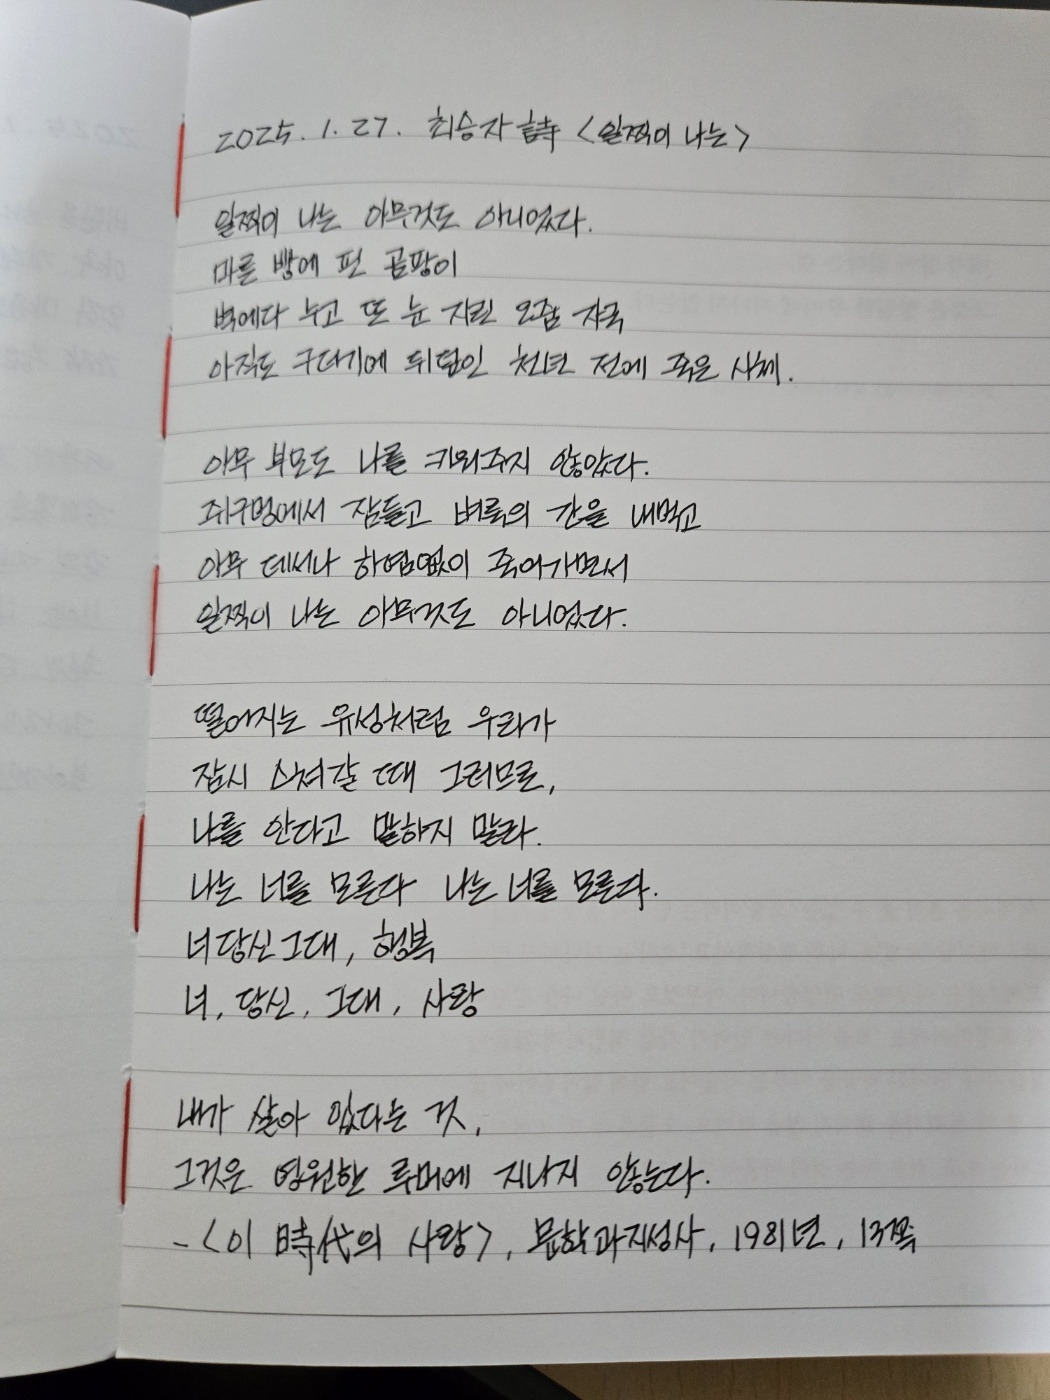 2025. 1. 27. 최승자 詩 <일찍이 나는>
일찍이 나는 아무것도 아니었다.
마른 빵에 핀 곰팡이
벽에다 누고 또 눈 지린 오줌 자국
아직도 구더기에 뒤덮인 천년 전에 죽은 시체.
아무 부모도 나를 키워주지 않았다.
쥐구멍에서 잠들고 벼룩의 간을 내먹고
아무 데서나 하염없이 죽어가면서
일찍이 나는 아무것도 아니었다.
떨어지는 유성처럼 우리가
잠시 스쳐갈 때 그러므로,
나를 안다고 말하지 말라.
나는 너를 모른다 나는 너를 모른다.
너당신그대, 행복
너, 당신, 그대, 사랑
내가 살아 있다는 것,
그것은 영원한 루머에 지나지 않는다.
- <이 時代의 사랑>, 문학과지성사, 1981년, 13쪽